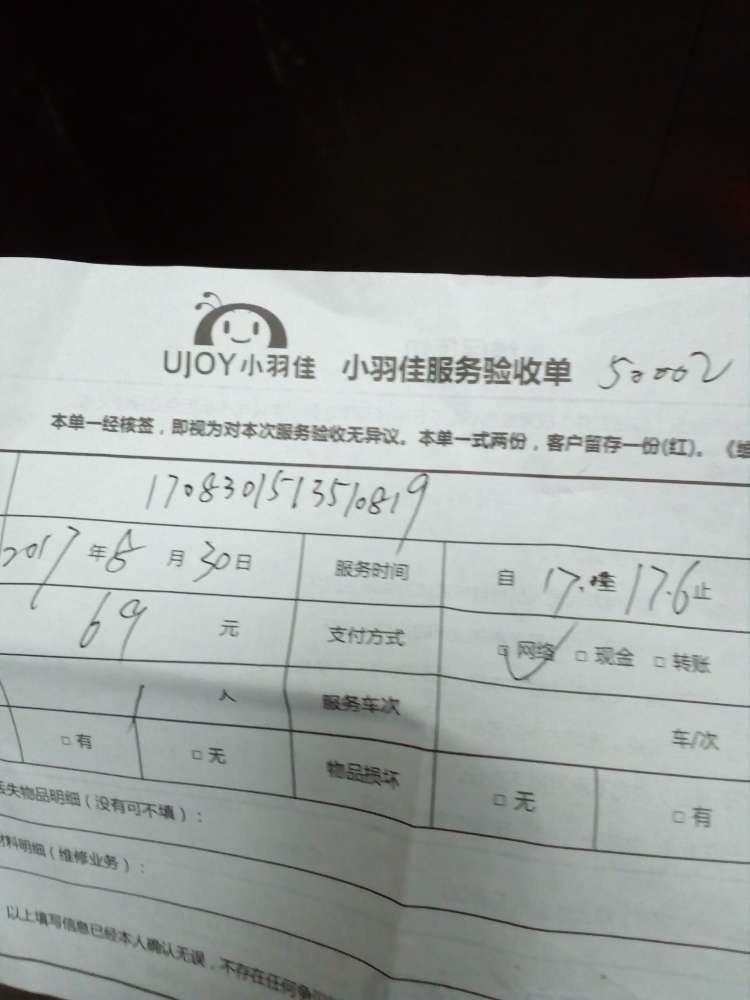 UJOY小羽佳 小羽佳服务验收单 50002
本单一经核签，即视为对本次服务验收无异议。本单一式两份，客户留存一份(红)。《维
1708301513510819
2017年8月30日 服务时间 自 17. 至 17.6止
69 元 支付方式 网络 现金 转账
1 人 服务车次 车/次
有 无 物品损坏 无 有
丢失物品明细（没有可不填）：
材料明细（维修业务）：
以上填写信息已经本人确认无误，不存在任何争议